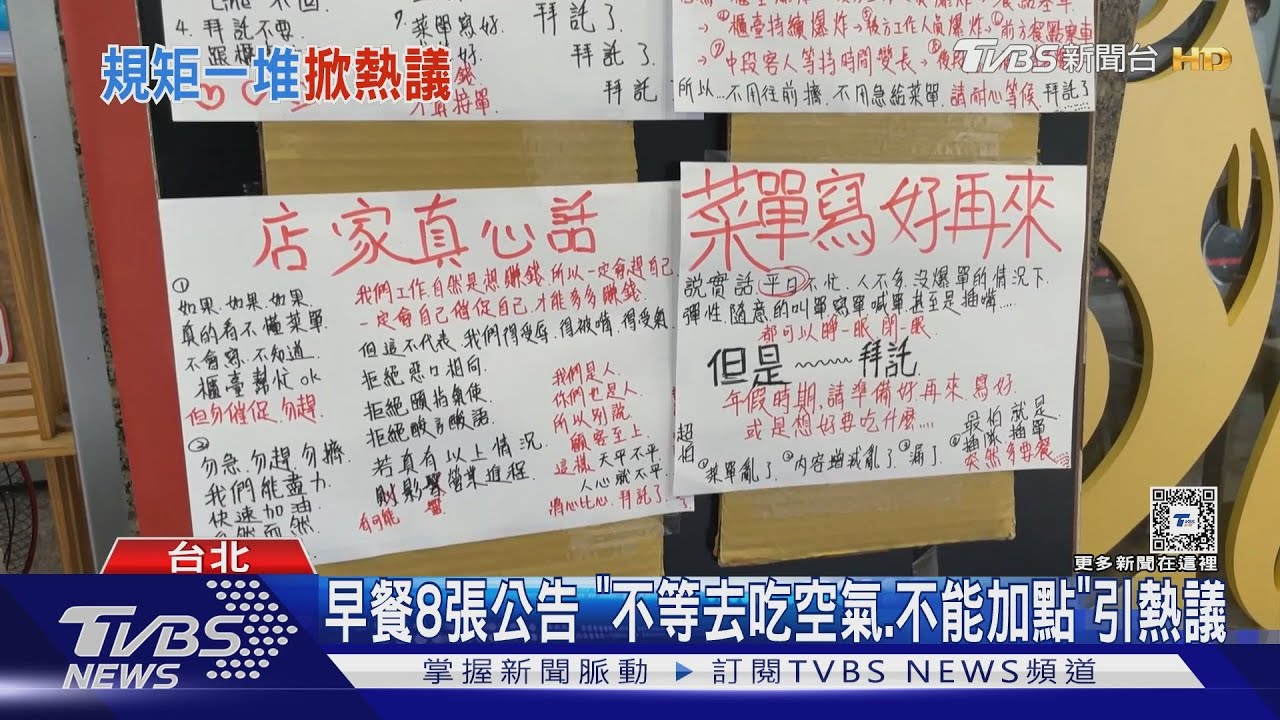 Line 不回
4. 拜託不要
7. 菜單寫好
拜託了
拜託了
不再接單
拜託
→櫃臺持續爆炸→後方工作人員爆炸→前方餐點塞車
→中段客人等待時間變長→
所以...不用往前擠.不用急給菜單.請耐心等候.拜託了
規矩一堆掀熱議
TVBS新聞台 HD
店家真心話
①
如果.如果.如果.
真的看不懂菜單
不會寫.不知道...
櫃臺幫忙ok
但勿催促.勿趕
②
勿急.勿趕.勿擠.
我們能盡力
快速加油
自然而然
我們工作.自然是想賺錢.所以一定會趕自己.
一定會自己催促自己.才能多多賺錢.
但這不代表.我們得受辱.得被嘴.得受氣.
拒絕惡口相向.
拒絕頤指氣使.
拒絕酸言酸語.
若真有以上情況
則影響營業進程.
有可能
我們是人.
你們也是人.
所以別說
顧客至上.
這樣天平不平
人心就不平
將心比心.拜託了
超怕
菜單寫好再來
說實話.平日不忙.人不多.沒爆單的情況下.
彈性.隨意的叫單寫單喊單甚至是插嘴....
都可以睜一眼閉一眼.
但是~~~~拜託
年假時期,請準備好再來.寫好.
或是想好要吃什麼....
最怕就是
①菜單亂了.②內容增減亂了.③漏了.④插隊插單
突然多要餐
更多新聞在這裡
台北
TVBS NEWS
早餐8張公告 "不等去吃空氣.不能加點"引熱議
掌握新聞脈動 ▶ 訂閱TVBS NEWS頻道